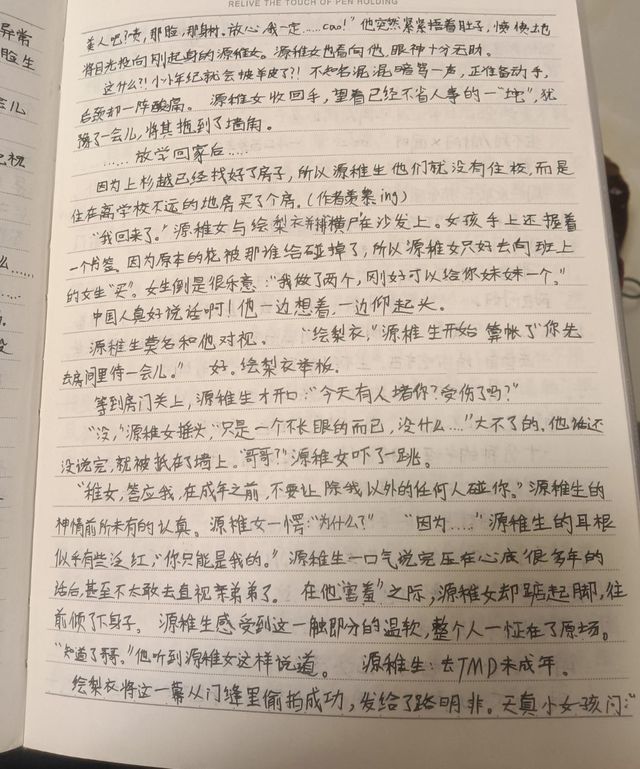 RELIVE THE TOUCH OF PEN HOLDING
美人吧?啧,那脸,那身材,放心,我一定……cao!"他突然紧紧捂着肚子,愤愤地
将目光投向刚起身的源稚女。源稚女也看向他,眼神十分无助。
这什么?!小小年纪就会披羊皮了?!不知名混混暗骂一声,正准备动手,
后颈却一阵酸痛。源稚女收回手,望着已经不省人事的一"坨",犹
豫了一会儿,将其拖到了墙角。
……放学回家后……
因为上杉越已经找好了房子,所以源稚生他们就没有住校,而是
住在离学校不远的地房买了个房。(作者羡慕ing)
"我回来了。"源稚女与绘梨衣并排横尸在沙发上。女孩手上还握着
一个书签,因为原本的花被那谁给碰掉了,所以源稚女只好去向班上
的女生"买"。女生倒是很乐意:"我做了两个,刚好可以给你妹妹一个。"
中国人真好说话啊!他一边想着,一边仰起头。
源稚生莫名和他对视。"绘梨衣,"源稚生开始算帐了"你先
去房间里待一会儿。"好。绘梨衣举板。
等到房门关上,源稚生才开口:"今天有人堵你?受伤了吗?"
"没,"源稚女摇头,"只是一个不长眼的而已,没什么……"大不了的,他话还
没说完,就被抵在了墙上。"哥哥?"源稚女吓了一跳。
"稚女,答应我,在成年之前,不要让除我以外的任何人碰你。"源稚生的
神情前所未有的认真。源稚女一愣:"为什么?""因为……"源稚生的耳根
似乎有些泛红,"你只能是我的。"源稚生一口气说完压在心底很多年的
话后,甚至不太敢去直视亲弟弟了。在他"害羞"之际,源稚女却踮起脚,往
前倾了下身子。源稚生感受到这一触即分的温软,整个人一怔在了原场。
"知道了哥哥。"他听到源稚女这样说道。源稚生:去TMD未成年。
绘梨衣将这一幕从门缝里偷拍成功,发给了路明非。天真小女孩问:"
异常
脸生
会儿